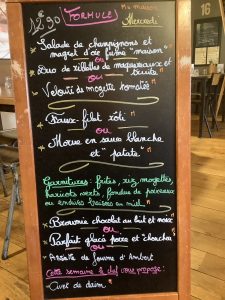 12€90 FORMULES "du maison"
Mercredi
* Salade de champignons et
magret d'oie fumé "maison"
ou
* Duo de rillettes de maquereaux et
truite
ou
* Velouté de mogette tomatée
* Faux-filet rôti
ou
* Morue en sauce blanche
et "patate"
Garnitures: frites, riz, mogettes,
haricots verts, fondue de poireaux
ou endives braisées au miel
* Brownie chocolat au lait et noix
ou
* Parfait glacé poire et "chouchou"
ou
* Assiette de fourme d'Ambert
Cette semaine le chef vous propose:
- Civet de daim.
16